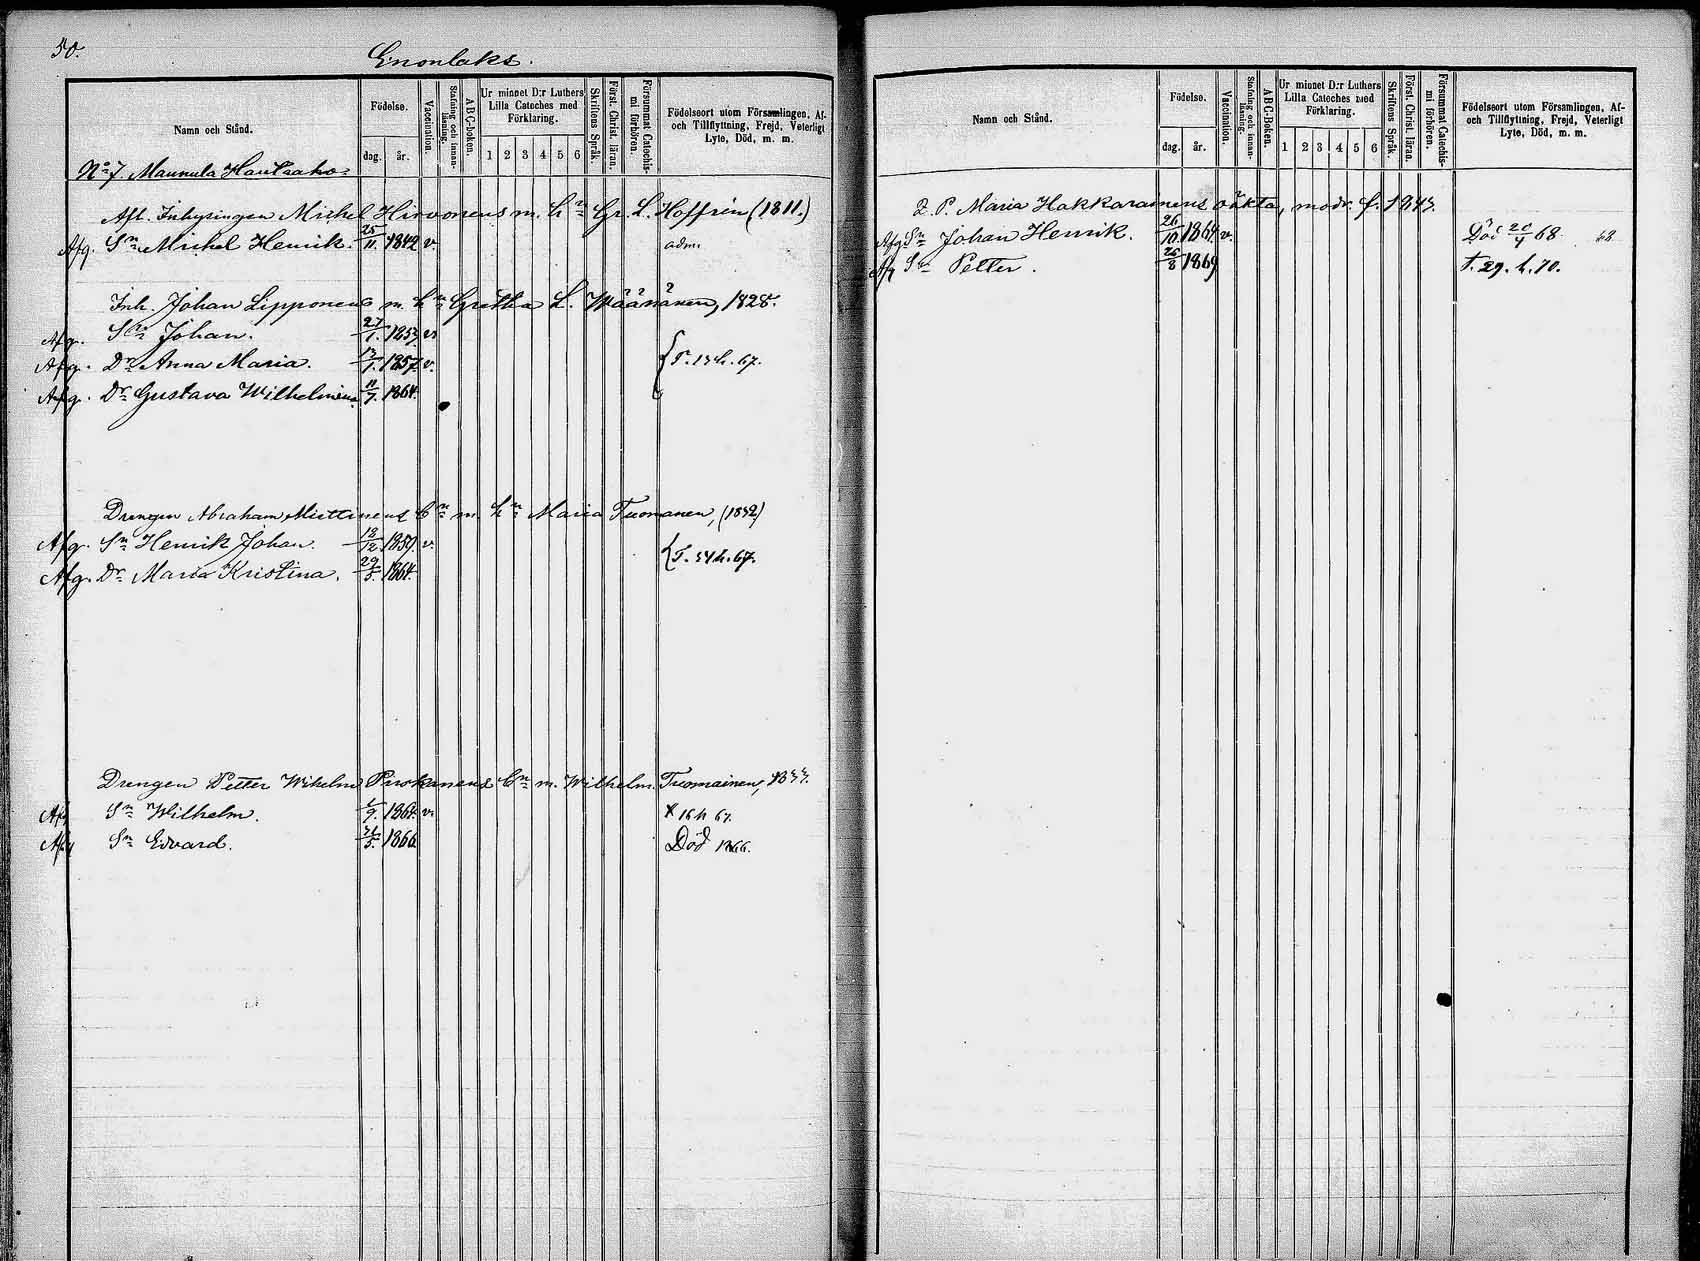 50.
Enonlaks.
Namn och Stånd. Födelse. dag. år. Vaccination. Stafning och innanläsning. ABC-boken. Ur minnet D:r Luthers Lilla Cateches med Förklaring. 1 2 3 4 5 6 Skriftens Språk. Först. Christ. läran. Försummat Catechismi förhören. Födelseort utom Församlingen, Af- och Tillflyttning, Frejd, Veterligt Lyte, Död, m. m.
No 7. Maunula Hautaaho
Afl. Inhysingen Michel Hirvonens m. hn Gr. L. Hoffrén (1811.)
Afg. Sn Michel Henrik. 25/11. 1842 v. adm.
Inh. Johan Lipponens m. hn Gretha L. Wäänänen, 1828.
Afg. Sn Johan. 27/1. v.
Afg. Dr Anna Maria. 1857 v. F. h. 67.
Afg. Dr Gustava Wilhelmina 11/7. 1864.
Drengen Abraham Miettinens m. hn Maria Tuomanen,
Afg. Sn Henrik Johan. 1859. v.
Afg. Dr Maria Kristina. 29/5. 1864. F. h. 67.
Drengen Petter Wilhelm Pirskanens m. Wilhelm. Tuomainen,
Afg Sn Wilhelm. 1864. v. 16 h 67.
Afg Sn Edvard. 1866 Död 1866.
Namn och Stånd. Födelse. dag. år. Vaccination. Stafning och innanläsning. ABC-Boken. Ur minnet D:r Luthers Lilla Cateches med Förklaring. 1 2 3 4 5 6 Skriftens Språk. Först. Christ. läran. Försummat Catechismi förhören. Födelseort utom Församlingen, Af- och Tillflyttning, Frejd, Veterligt Lyte, Död, m. m.
Q. P. Maria Hakkarainens oäkta, modr. f.
Afg Sn Johan Henrik. 26/10 1864. v. Död 20/4 68. 68
Afg Sn Petter. 26/8 1869 F. 29. h. 70.